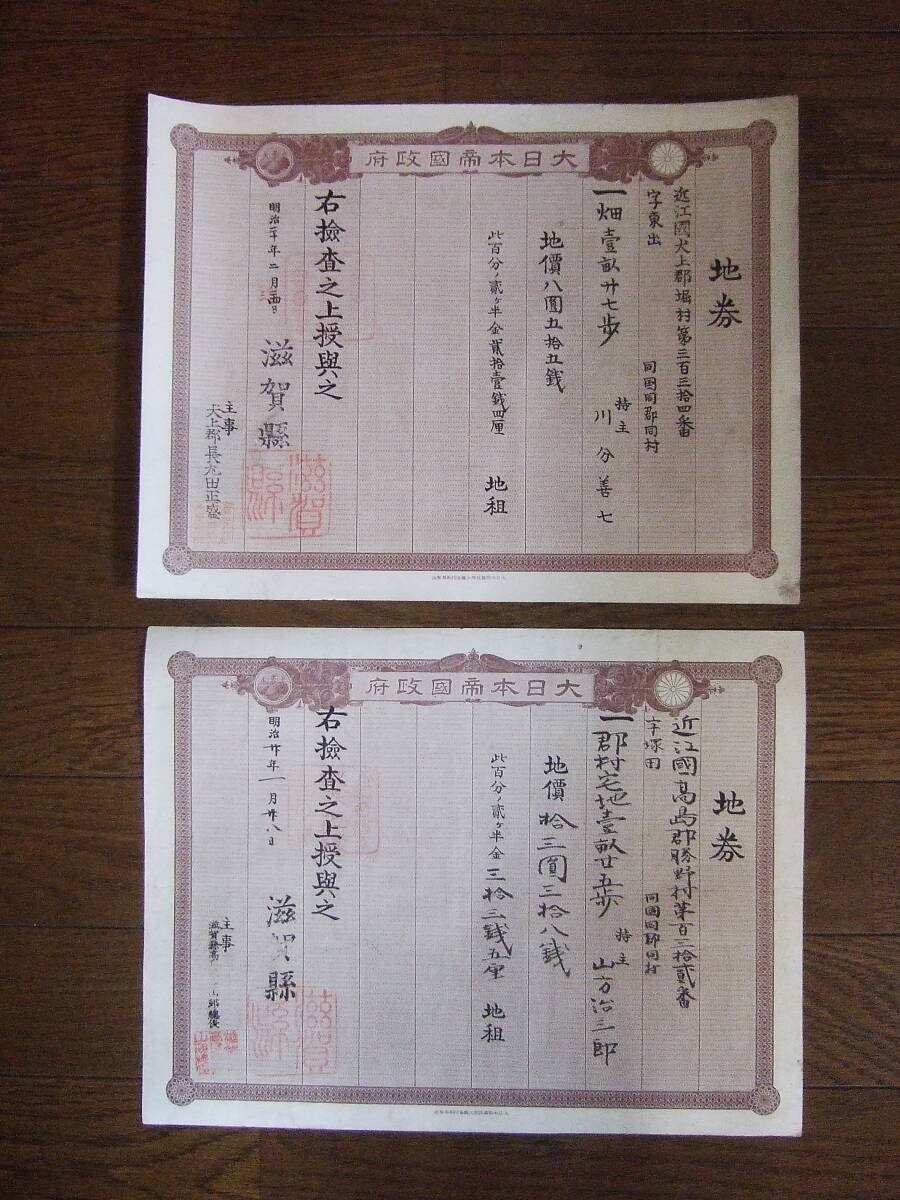 大日本帝國政府
地券
近江國犬上郡堀村第三百三拾四番
字東出
同国同郡同村
一畑壹畝廿七歩
持主
川分善七
地價八圓五拾五銭
此百分ノ貳ヶ半金貳拾壹銭四厘
地租
右撿査之上授與之
明治二十年二月
滋賀縣
主事
犬上郡長
正盛
大日本帝國政府
地券
近江國高島郡勝野村第百三拾貳番
字塚田
同国同郡同村
一郡村宅地壹畝廿五歩
持主
山方治三郎
地價拾三圓三拾八銭
此百分ノ貳ヶ半金三拾三銭五厘
地租
右撿査之上授與之
明治廿年一月廿八日
滋賀縣
主事
滋賀縣高